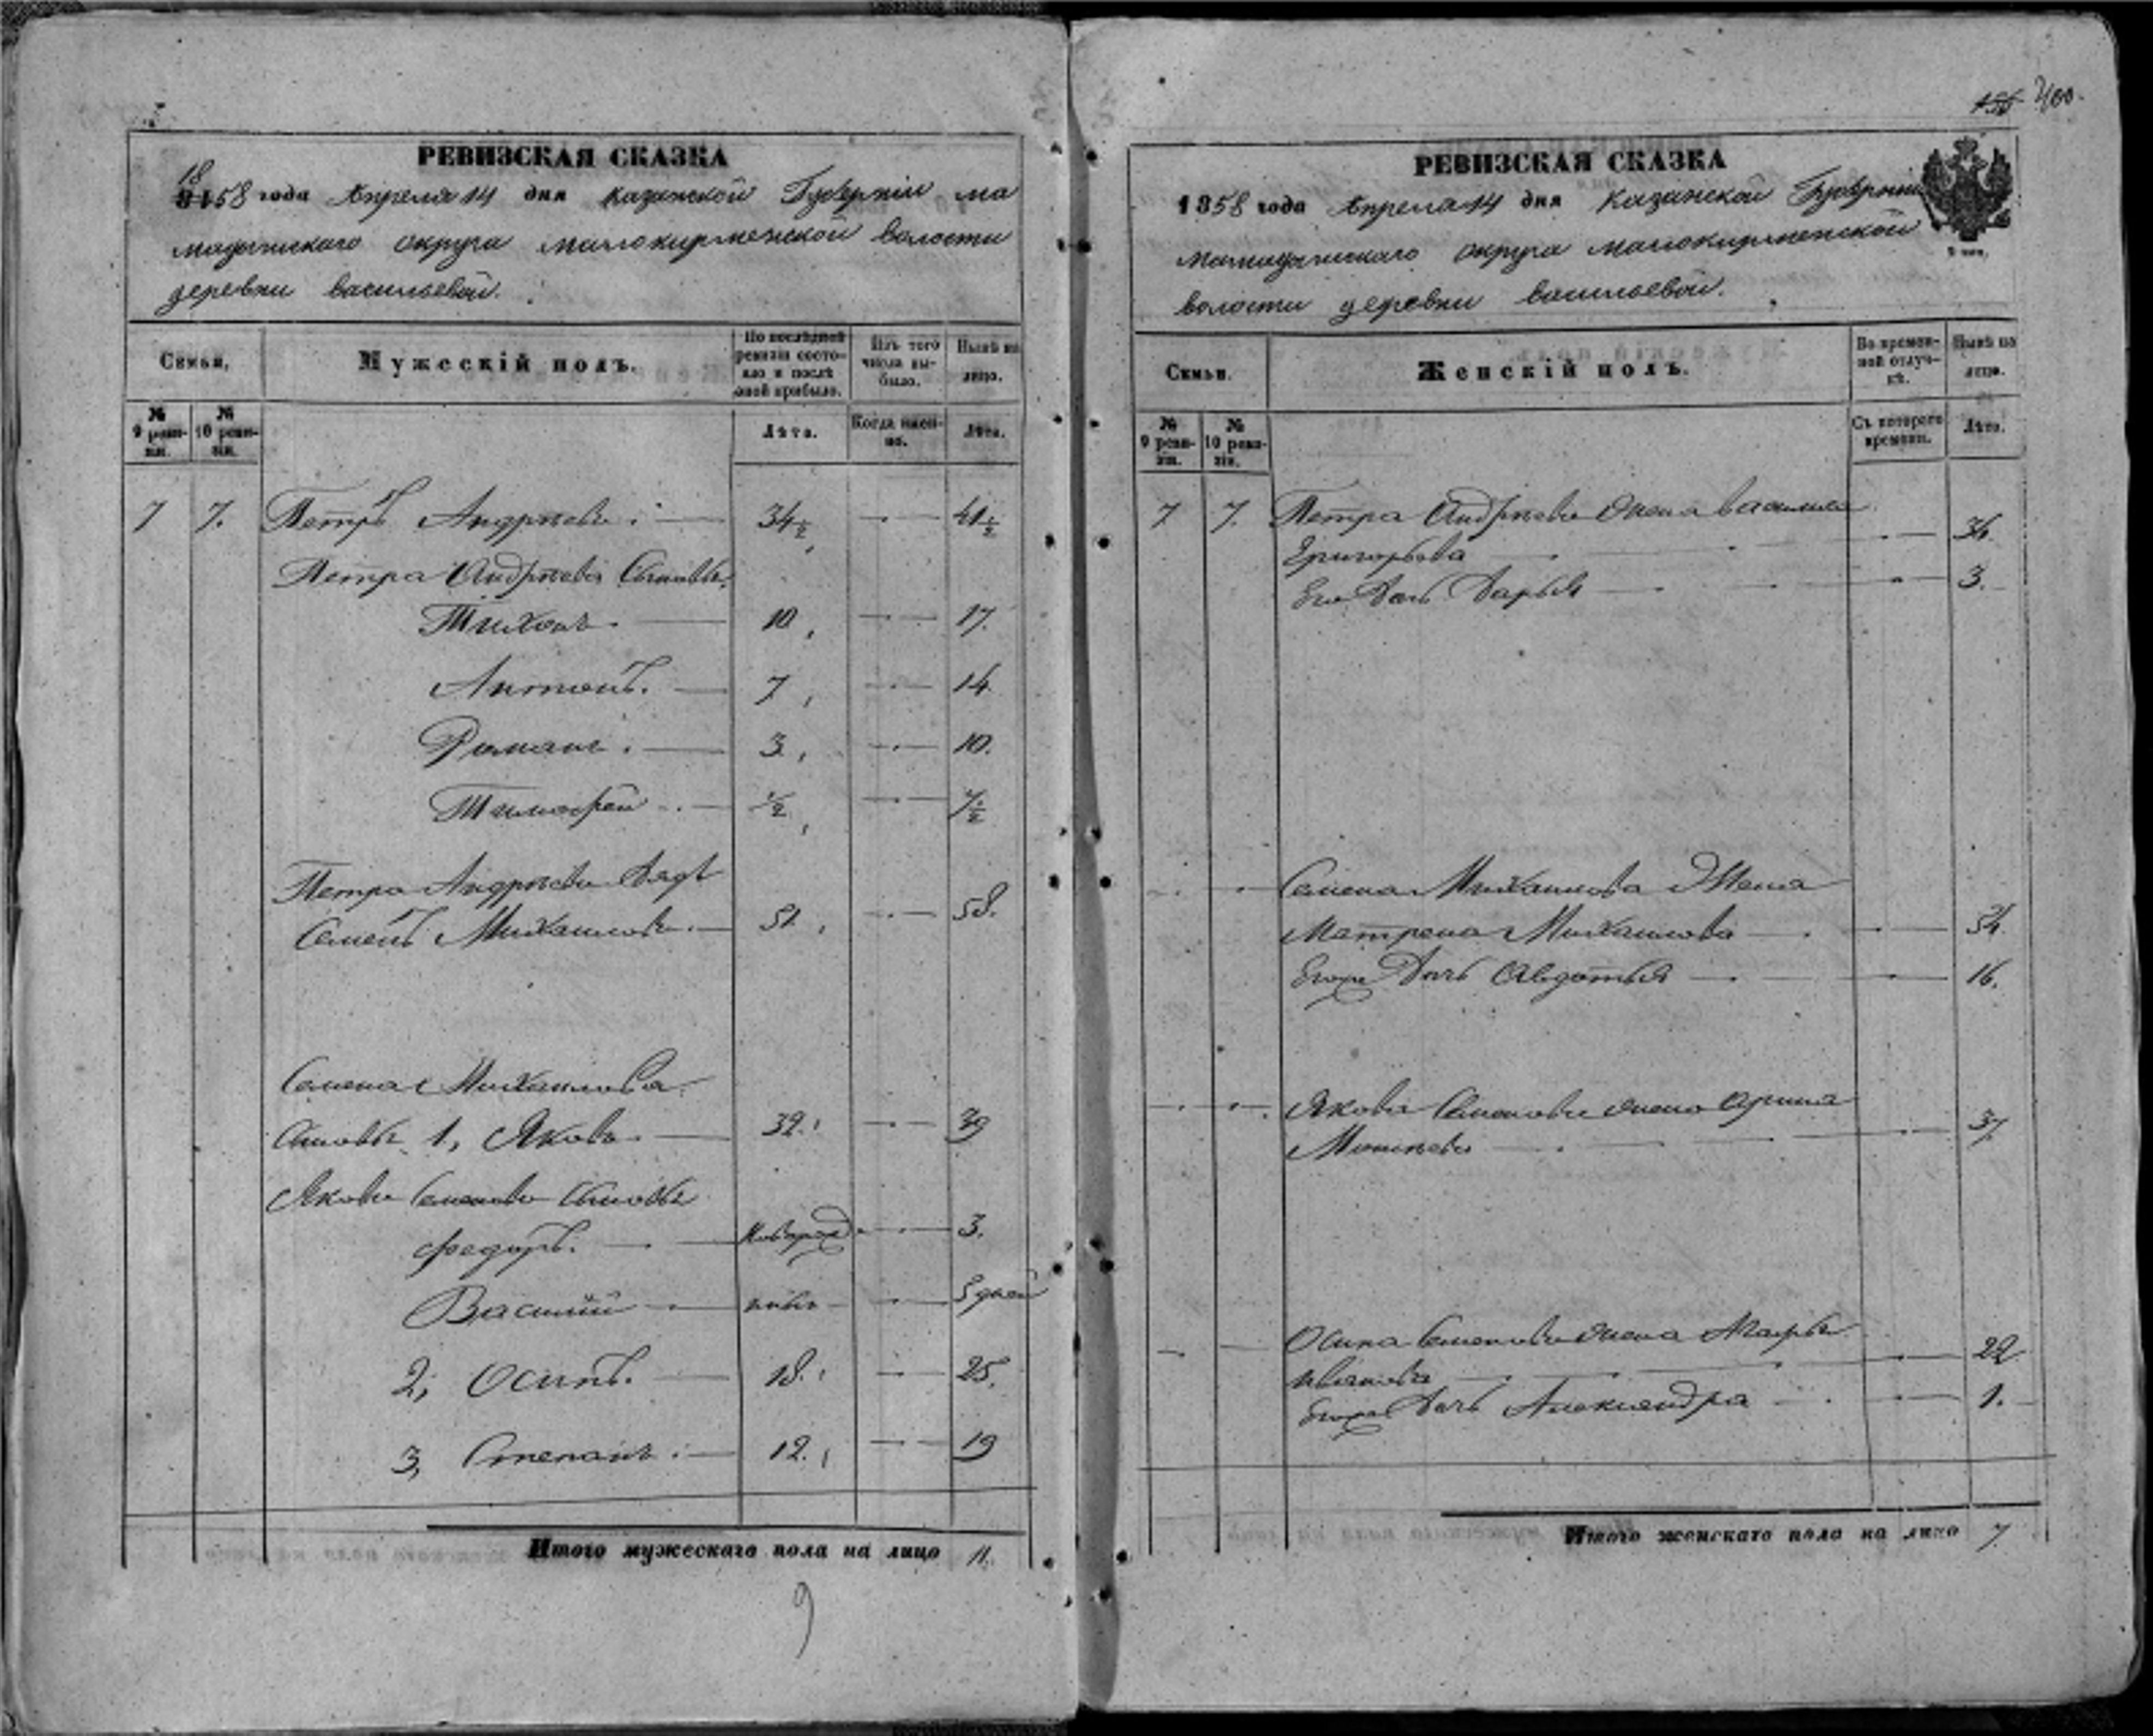 РЕВИЗСКАЯ СКАЗКА
1858 года Апреля 14 дня Казанской Губернии ма
мадышскаго округа малокирменской волости
деревни васильевой.
Семьи,
Мужескій полъ.
По послѣдней ревизіи состояло и послѣ оной прибыло.
Изъ того числа выбыло.
Нынѣ на лицо.
№ 9 ревизіи.
№ 10 ревизіи.
Лѣта.
Когда именно.
Лѣта.
7 7. Петръ Андрѣевъ. 34½ 41½
Петра Андрѣева Сыновья
Тихонъ. 10, 17.
Антонъ. 7, 14.
Романъ. 3, 10.
Тимофей ½, 7½
Петра Андрѣева Дядя
Семенъ Михайловъ. 51, 58.
Семена Михайлова
Сыновья 1, Яковъ 32. 39
Якова Семенова Сыновья
федоръ. новорожд 3.
Василий новъ 5 дней
2, Осипъ. 18. 25.
3, Степанъ. 12. 19
Итого мужескаго пола на лицо 11.
9
156 400.
РЕВИЗСКАЯ СКАЗКА
1858 года Апреля 14 дня Казанской Губернии
мамадышскаго округа малокирменской
волости деревни васильевой.
2 коп.
Семьи.
Женскій полъ.
Во временной отлучкѣ.
Нынѣ на лицо.
№ 9 ревизіи.
№ 10 ревизіи.
Съ котораго времени.
Лѣта.
7 7. Петра Андрѣева жена василиса
Григорьева 36.
Его Дочь Дарья 3.
Семена Михайлова Жена
Матрена Михайлова 54.
Егоже Дочь Авдотья 16.
Якова Семенова жена Арина
37
Осипа Семенова жена Марья
Иванова 22
Егоже Дочь Александра 1.
Итого женскаго пола на лицо 7